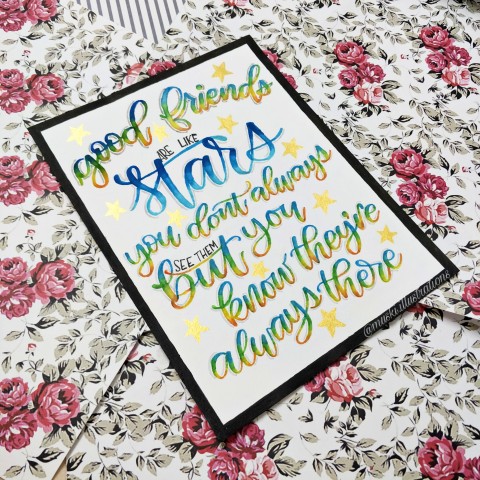 good friends
ARE LIKE
stars
you don't always
SEE THEM
but you
know they're
always there